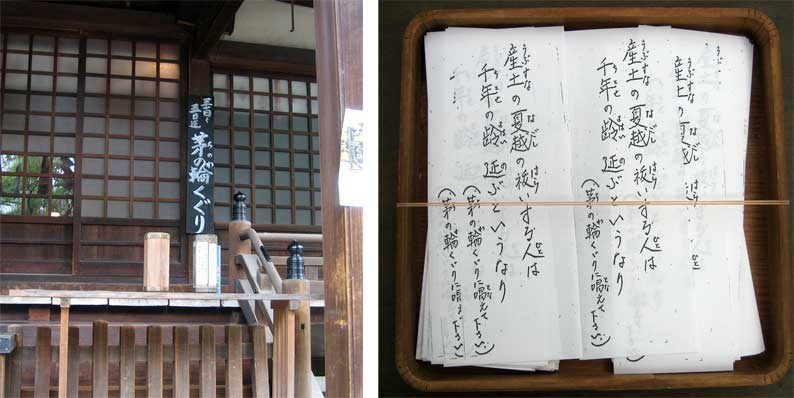 三日迄
茅の輪くぐり
産土の夏越
産土の夏越の祓いする人は
千年の齢 延ぶというなり
(茅の輪くぐりに唱えて下さい)
産土の夏越の祓いする人は
千年の齢 延ぶというなり
(茅の輪くぐりに唱えて下さい)
(茅の輪くぐりに唱えて下さい)